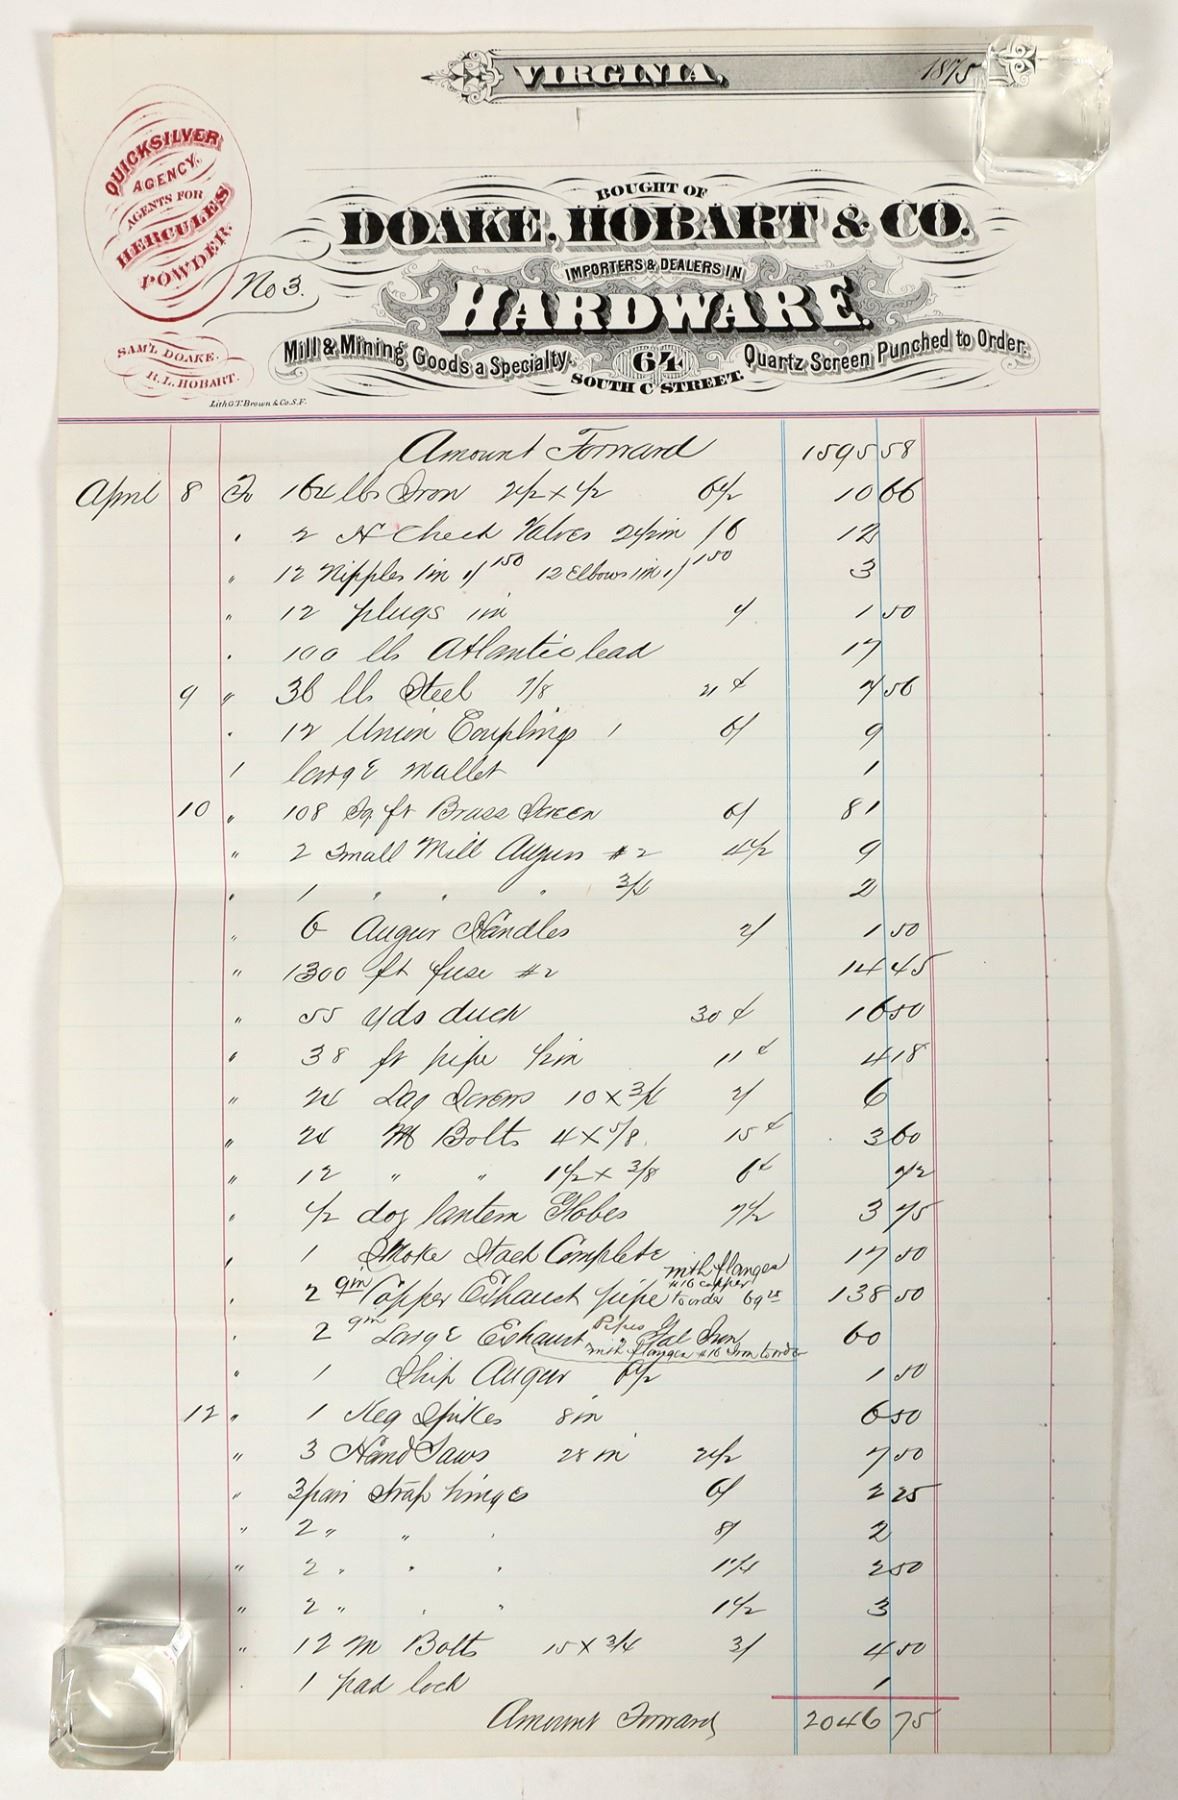 VIRGINIA, 1875
QUICKSILVER
AGENCY,
AGENTS FOR
HERCULES
POWDER.
No 3.
BOUGHT OF
DOAKE, HOBART & CO.
IMPORTERS & DEALERS IN
HARDWARE.
Mill & Mining Goods a Specialty. 64 Quartz Screen Punched to Order.
SOUTH C STREET.
SAM'L DOAKE.
R. L. HOBART.
Lith G.T. Brown & Co. S.F.
Amount Forward 1595 58
April 8 To 164 lbs Iron 2 1/2 x 1/2 6 1/2 10 66
" 2 Check Valves 2 1/2 in /6 12
" 12 Nipples 1 in 1/ 1 50 12 Elbows 1 in 1/ 1 50 3
" 12 plugs 1 in 1/ 1 50
" 100 lb Atlantic lead 17
9 " 36 lb Steel 7/8 21 ¢ 7 56
" 12 Union Couplings 1 6/ 9
1 large mallet 1
10 " 108 Sq. ft Brass Screen 6/ 81
" 2 Small Mill Augurs #2 4 1/2 9
" 1 " " " 3/4 2
" 6 Augur Handles 2/ 1 50
" 1300 ft fuse #2 14 45
" 55 yds duck 30 ¢ 16 50
" 38 ft pipe 1/2 in 11 ¢ 4 18
" 24 Lag Screws 10 x 3/4 2/ 6
" 24 M Bolts 4 x 5/8 15 ¢ 3 60
" 12 " " 1 1/2 x 3/8 6 ¢ 72
" 1/2 doz lantern Globes 7 1/2 3 75
" 1 Smoke Stack Complete 17 50
with flanges
#16 copper
" 2 9 in Copper Exhaust pipe to order 69 25 138 50
" 2 9 in Large Exhaust Pipes Gal Iron 60
with flanges #16 Iron to order
" 1 Ship Augur 1 50
12 " 1 Keg Spikes 8 in 6 50
" 3 Hand Saws 28 in 2 1/2 7 50
" 3 pair Strap hinges 6/ 2 25
" 2 " " " 8/ 2
" 2 " " " 1 1/4 2 50
" 2 " " " 1 1/2 3
" 12 M Bolts 15 x 3/4 3/ 4 50
" 1 pad lock 1
Amount Forward 2046 75